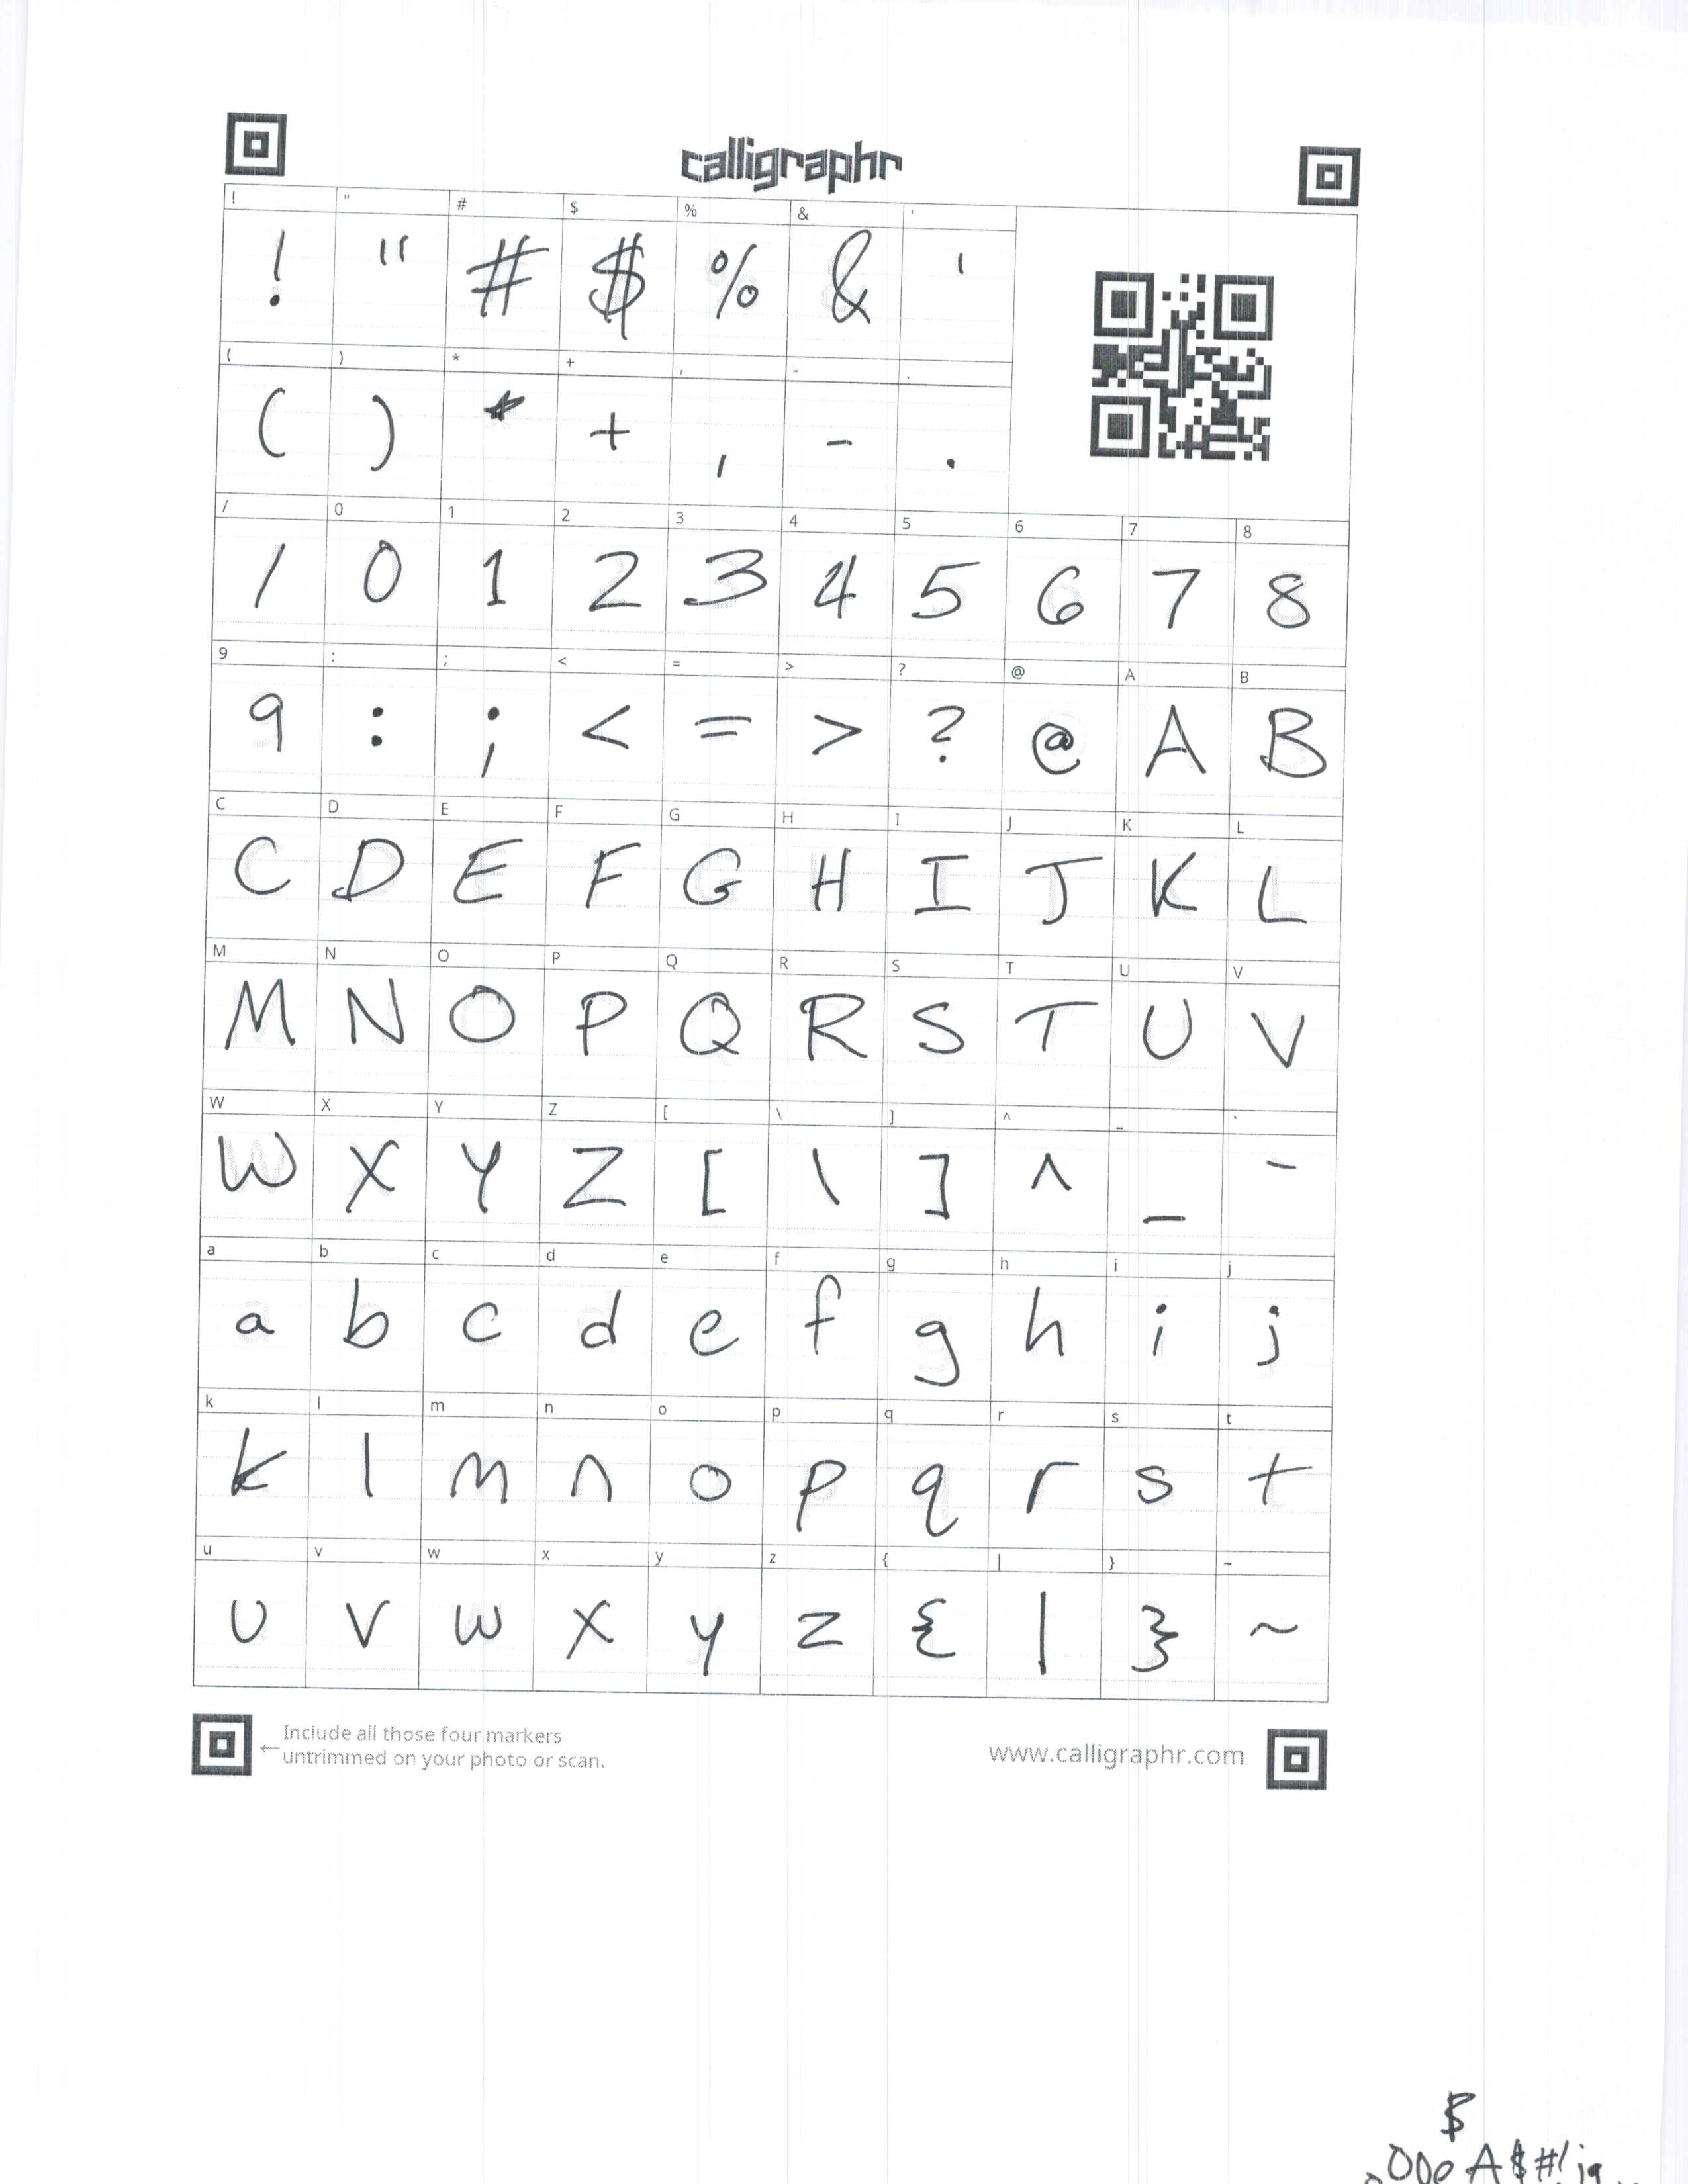 calligraphr
! " # $ % & '
! " # $ % & '
( ) * + , - .
( ) * + , - .
/ 0 1 2 3 4 5 6 7 8
/ 0 1 2 3 4 5 6 7 8
9 : ; < = > ? @ A B
9 : ; < = > ? @ A B
C D E F G H I J K L
C D E F G H I J K L
M N O P Q R S T U V
M N O P Q R S T U V
W X Y Z [ \ ] ^ _ `
W X Y Z [ \ ] ^ _ `
a b c d e f g h i j
a b c d e f g h i j
k l m n o p q r s t
k l m n o p q r s t
u v w x y z { | } ~
u v w x y z { | } ~
← Include all those four markers
untrimmed on your photo or scan.
www.calligraphr.com
$
A $ # !